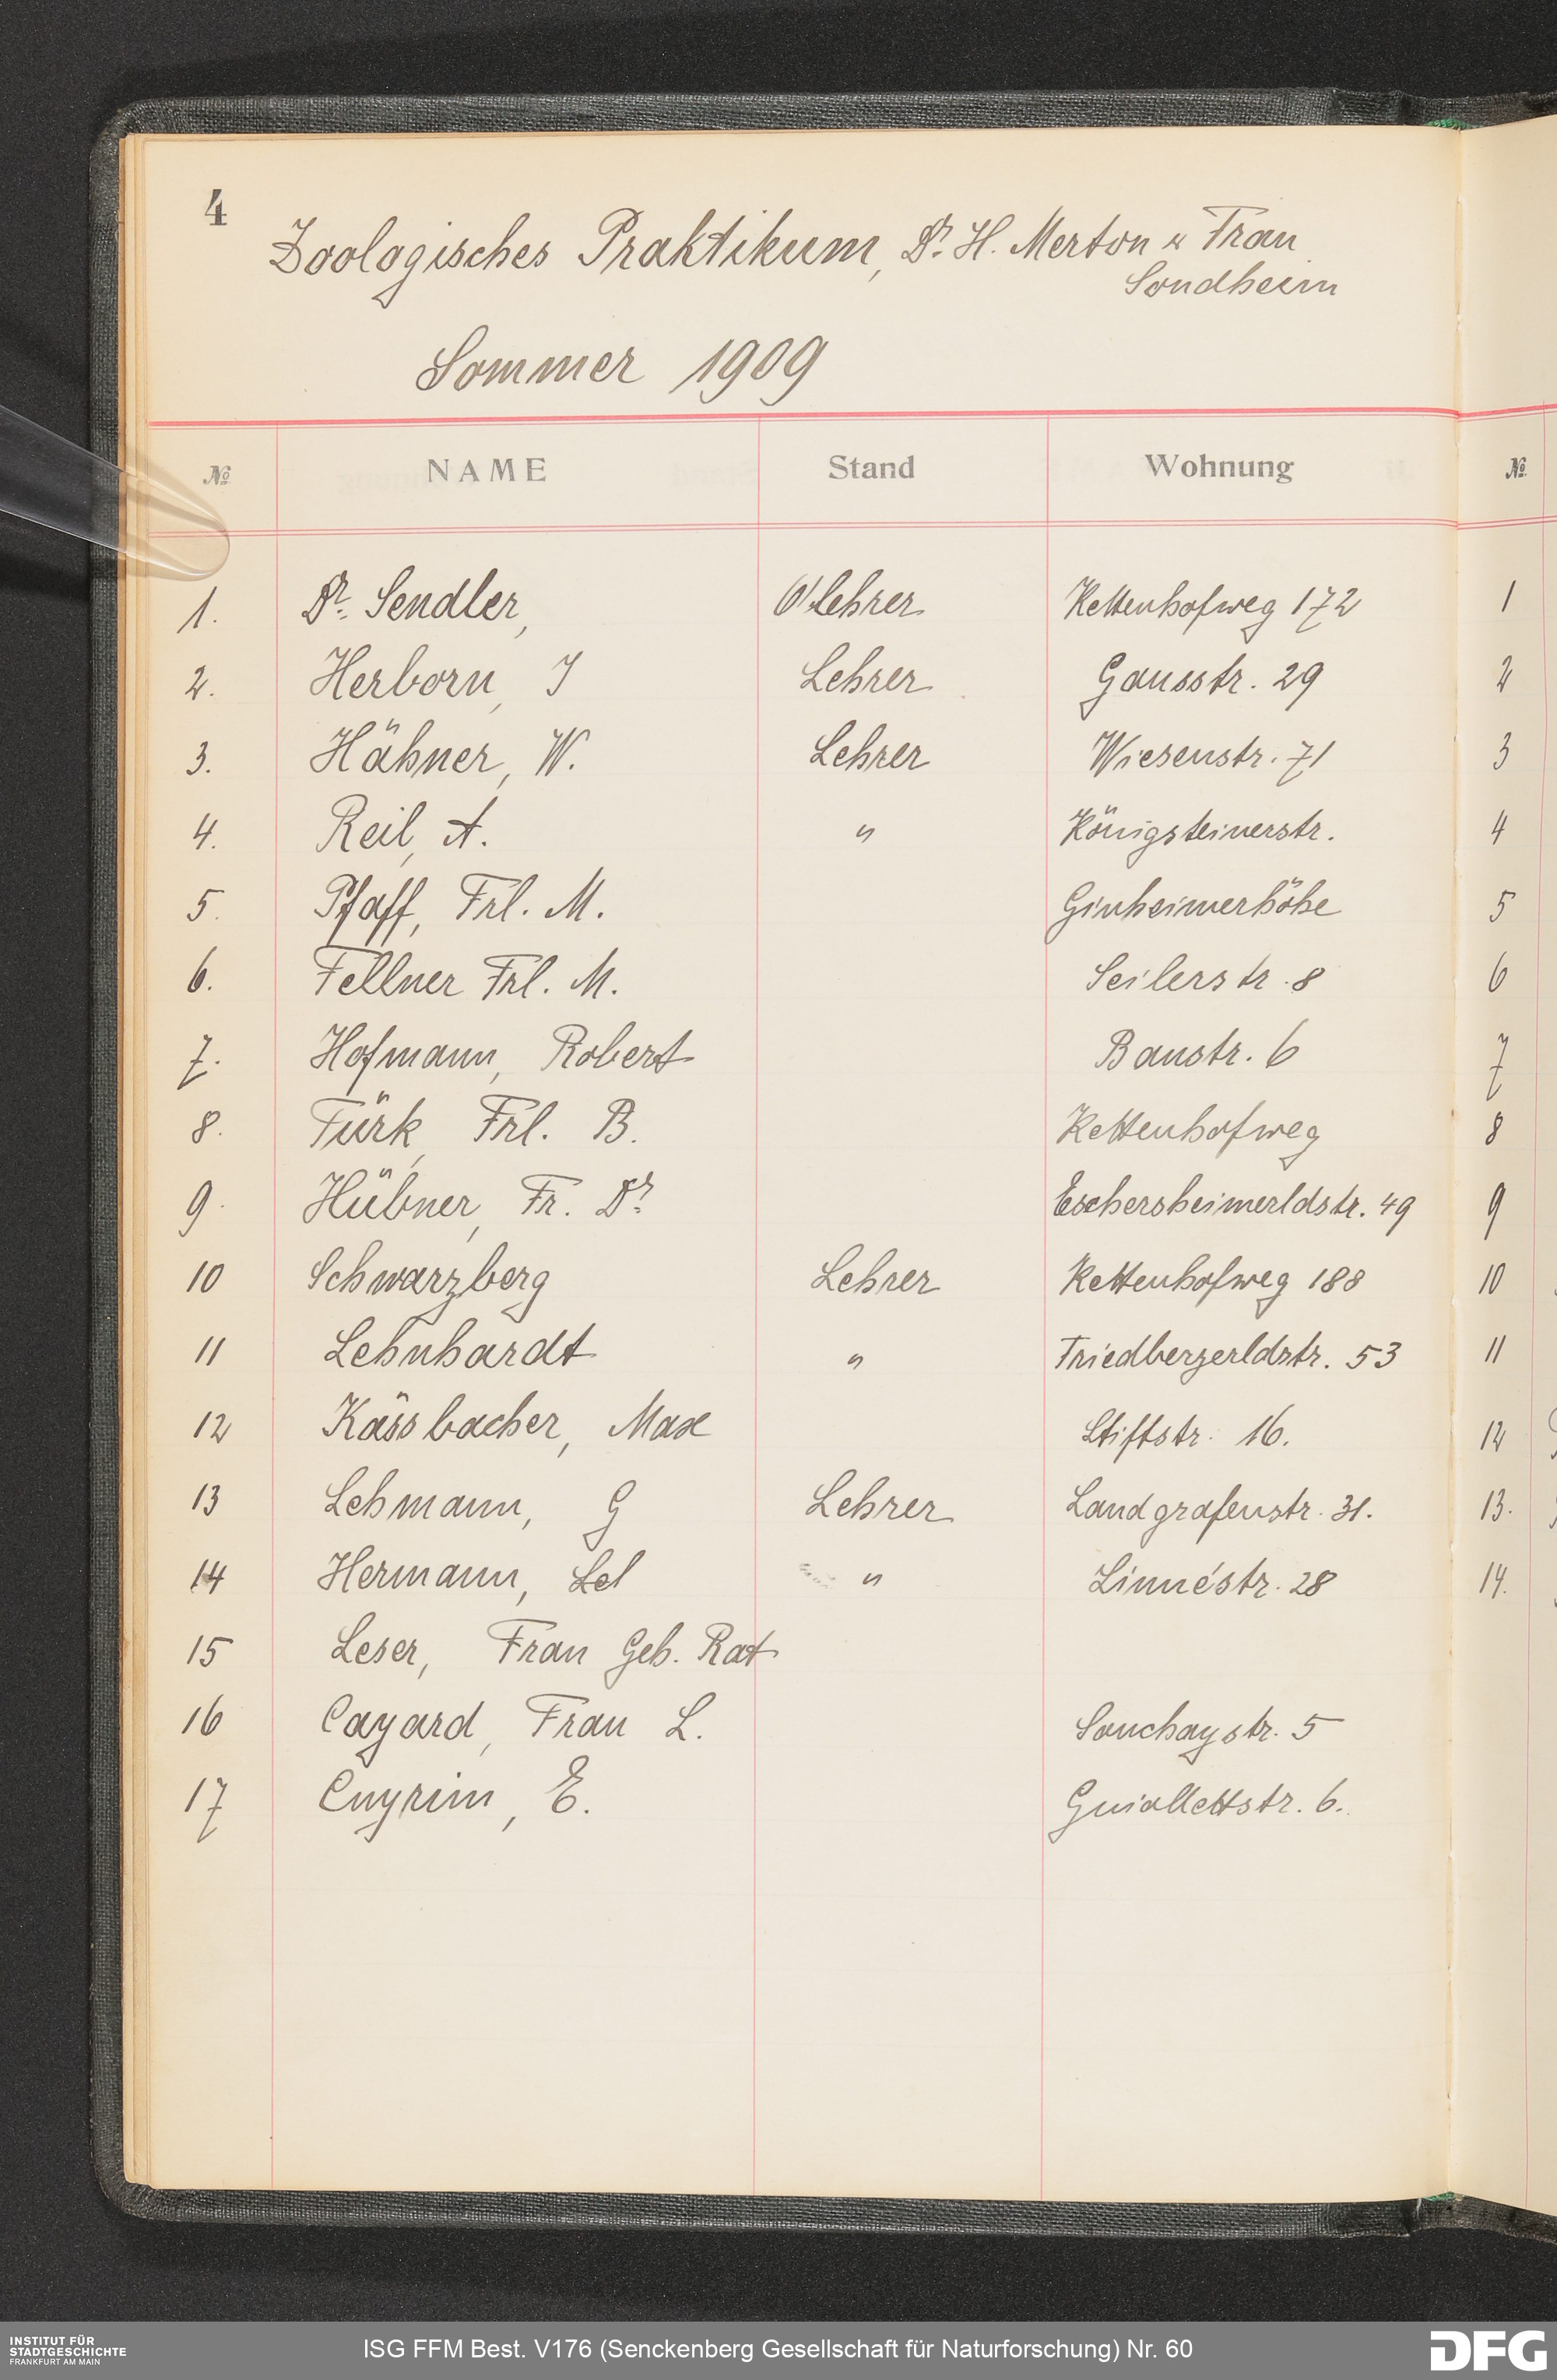 4
Zoologisches Praktikum, Dr. H. Merton u Frau
Sondheim
Sommer 1909
№ NAME Stand Wohnung №
1. Dr. Sendler, O'lehrer Kettenhofweg 172 1
2. Herborn, J Lehrer Gausstr. 29 2
3. Hähner, W. Lehrer Wiesenstr. 71 3
4. Reil, A. " Königsteinerstr. 4
5. Pfaff, Frl. M. Ginheimerhöhe 5
6. Fellner Frl. M. Seilerstr. 8 6
7. Hofmann, Robert Baustr. 6 7
8. Türk, Frl. B. Kettenhofweg 8
9. Hübner, Fr. Dr. Eschersheimerldstr. 49 9
10 Schwarzberg Lehrer Kettenhofweg 188 10
11 Lehnhardt " Friedbergerldstr. 53 11
12 Kässbacher, Max Stiftstr. 16. 12
13 Lehmann, G Lehrer Landgrafenstr. 31. 13.
14 Hermann, " Linnéstr. 28 14.
15 Leser, Frau Geh. Rat
16 Cayard, Frau L. Souchaystr. 5
17 Cnyrim, E. Guiollettstr. 6.
INSTITUT FÜR
STADTGESCHICHTE
FRANKFURT AM MAIN
ISG FFM Best. V176 (Senckenberg Gesellschaft für Naturforschung) Nr. 60
DFG